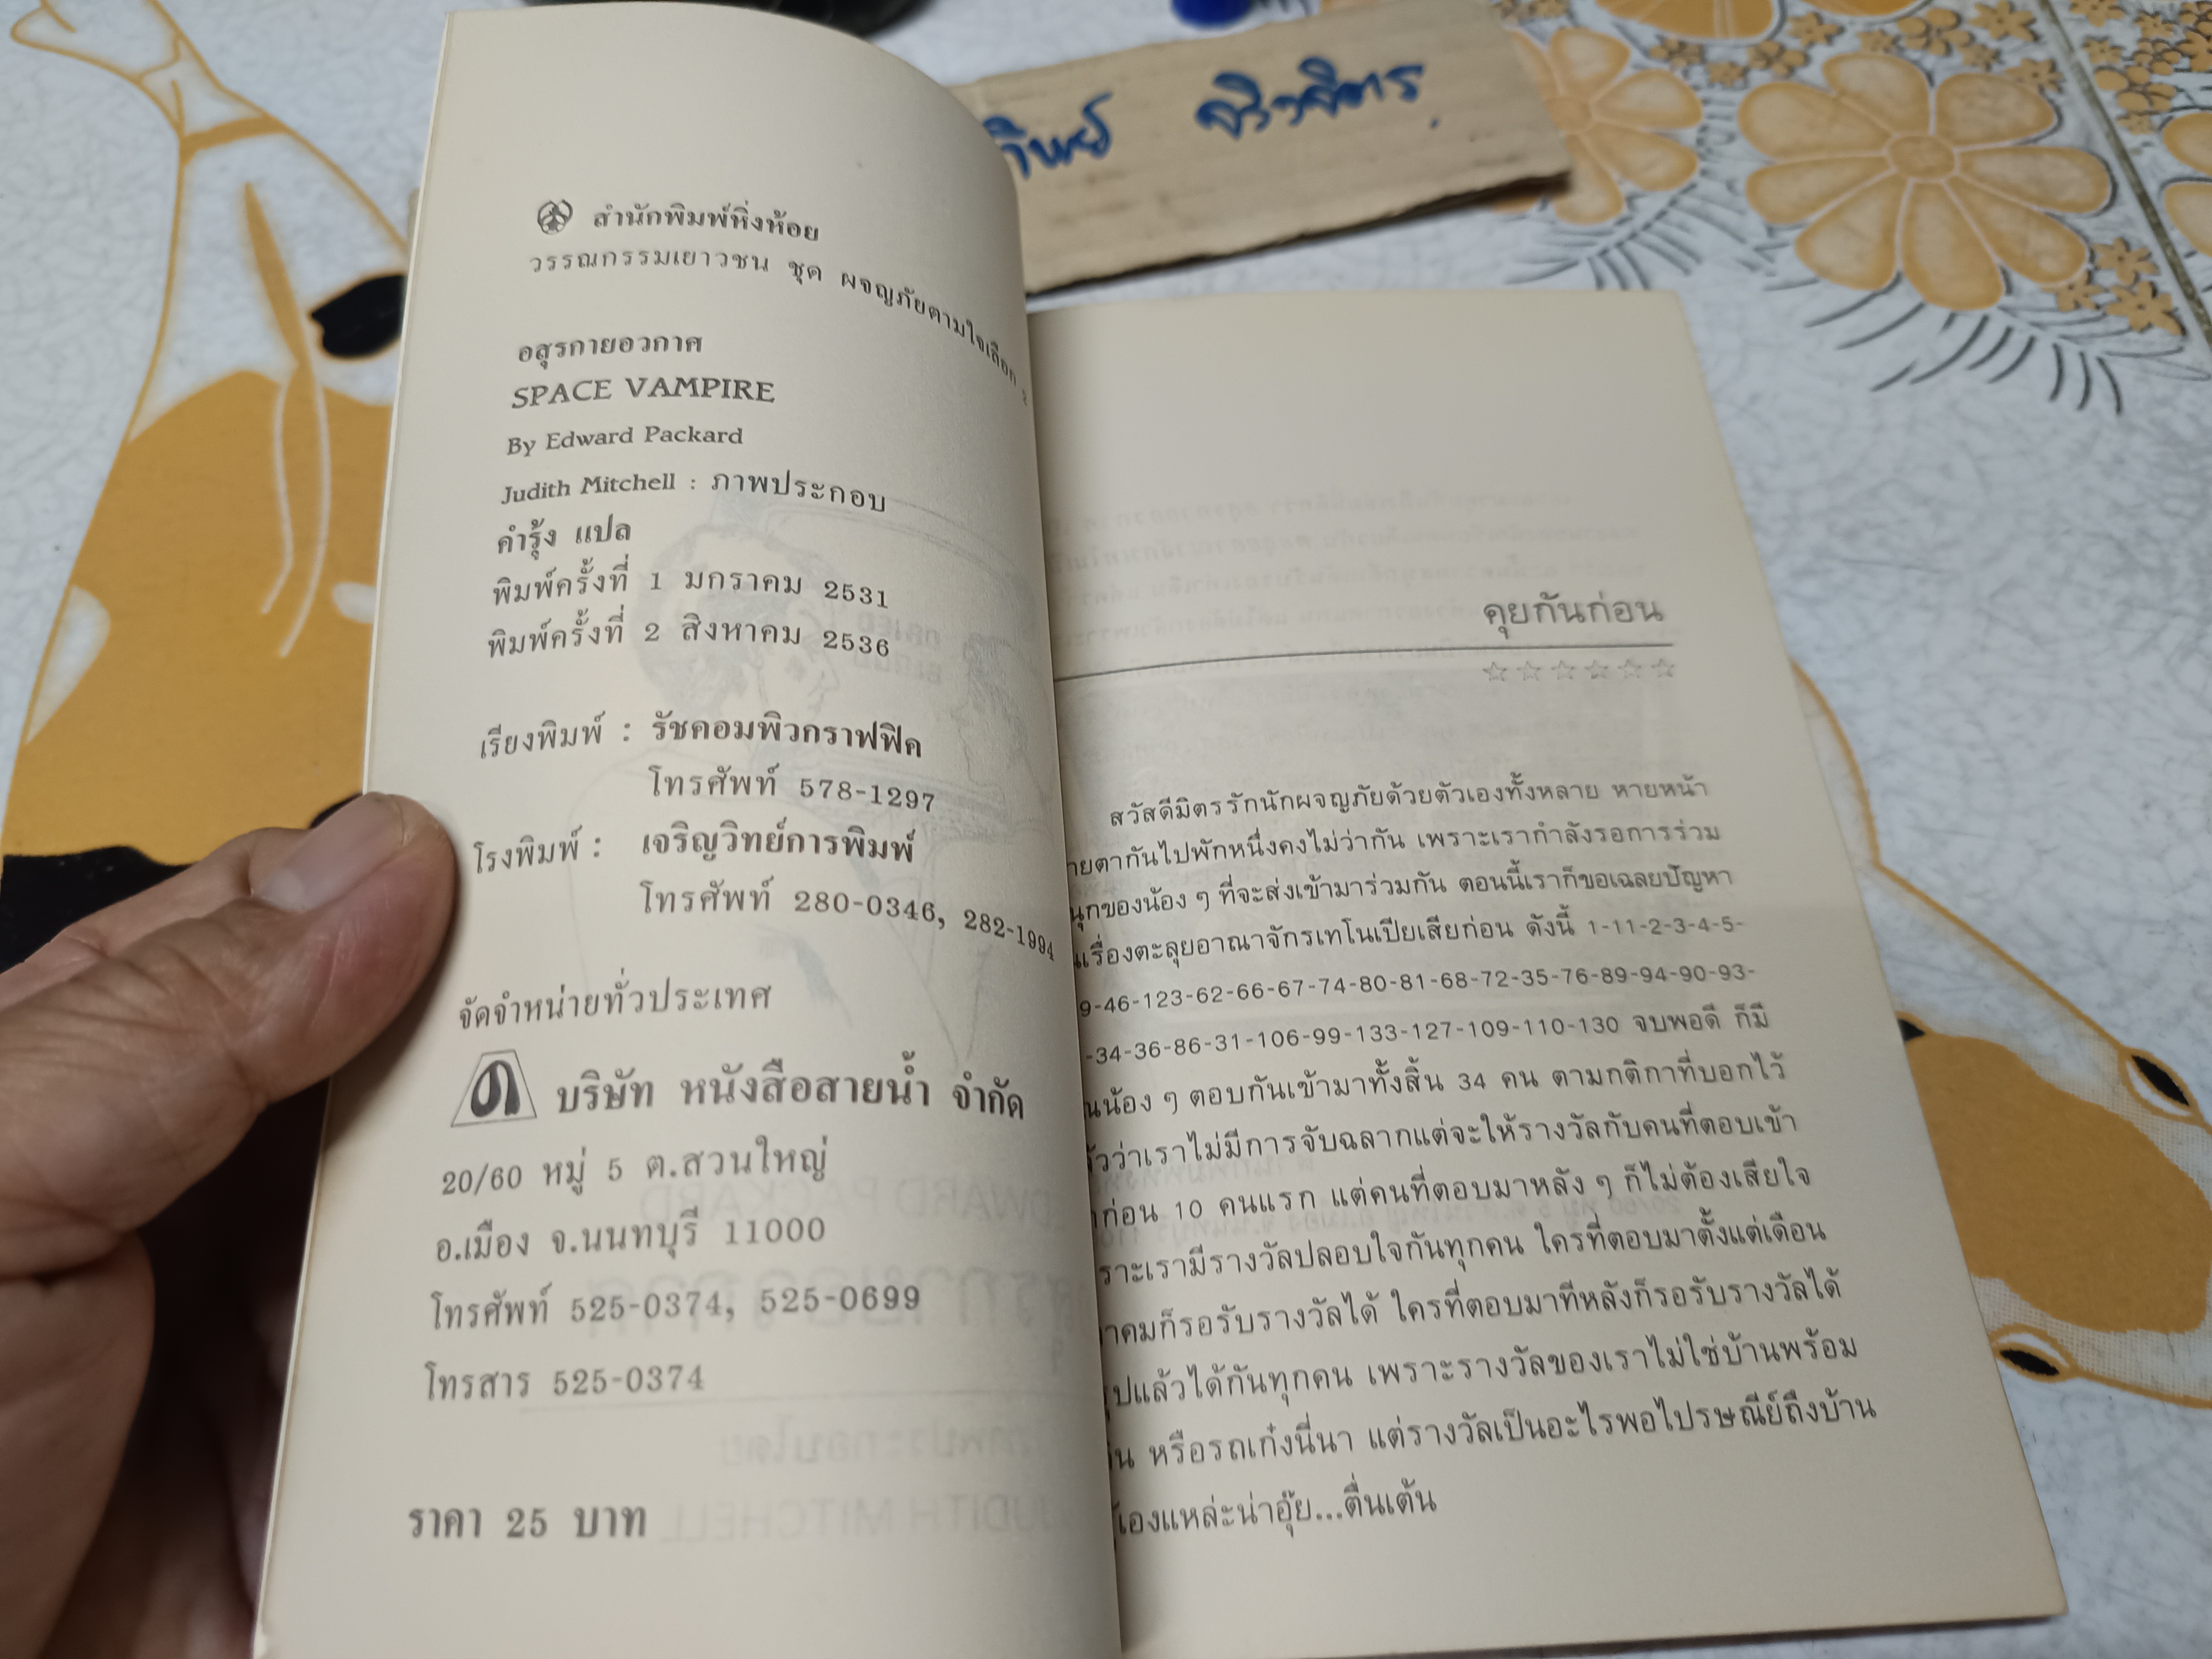 จิวจิตร
สำนักพิมพ์หิ่งห้อย
วรรณกรรมเยาวชน ชุด ผจญภัยตามใจเลือก
อสุรกายอวกาศ
SPACE VAMPIRE
By Edward Packard
Judith Mitchell : ภาพประกอบ
คำรุ้ง แปล
พิมพ์ครั้งที่ 1 มกราคม 2531
พิมพ์ครั้งที่ 2 สิงหาคม 2536
เรียงพิมพ์ : รัชคอมพิวกราฟฟิค
โทรศัพท์ 578-1297
โรงพิมพ์ : เจริญวิทย์การพิมพ์
โทรศัพท์ 280-0346, 282-1994
จัดจำหน่ายทั่วประเทศ
บริษัท หนังสือสายน้ำ จำกัด
20/60 หมู่ 5 ต.สวนใหญ่
อ.เมือง จ.นนทบุรี 11000
โทรศัพท์ 525-0374, 525-0699
โทรสาร 525-0374
ราคา 25 บาท
คุยกันก่อน
สวัสดีมิตรรักนักผจญภัยด้วยตัวเองทั้งหลาย หายหน้า
ายตากันไปพักหนึ่งคงไม่ว่ากัน เพราะเรากำลังรอการร่วม
นุกของน้อง ๆ ที่จะส่งเข้ามาร่วมกัน ตอนนี้เราก็ขอเฉลยปัญหา
เรื่องตะลุยอาณาจักรเทโนเปียเสียก่อน ดังนี้ 1-11-2-3-4-5-
9-46-123-62-66-67-74-80-81-68-72-35-76-89-94-90-93-
-34-36-86-31-106-99-133-127-109-110-130 จบพอดี ก็มี
นน้อง ๆ ตอบกันเข้ามาทั้งสิ้น 34 คน ตามกติกาที่บอกไว้
ว่าเราไม่มีการจับฉลากแต่จะให้รางวัลกับคนที่ตอบเข้า
ก่อน 10 คนแรก แต่คนที่ตอบมาหลัง ๆ ก็ไม่ต้องเสียใจ
ราะเรามีรางวัลปลอบใจกันทุกคน ใครที่ตอบมาตั้งแต่เดือน
าคมก็รอรับรางวัลได้ ใครที่ตอบมาทีหลังก็รอรับรางวัลได้
ุปแล้วได้กันทุกคน เพราะรางวัลของเราไม่ใช่บ้านพร้อม
หรือรถเก๋งนี่นา แต่รางวัลเป็นอะไรพอไปรษณีย์ถึงบ้าน
เองแหล่ะน่าอุ๊ย...ตื่นเต้น